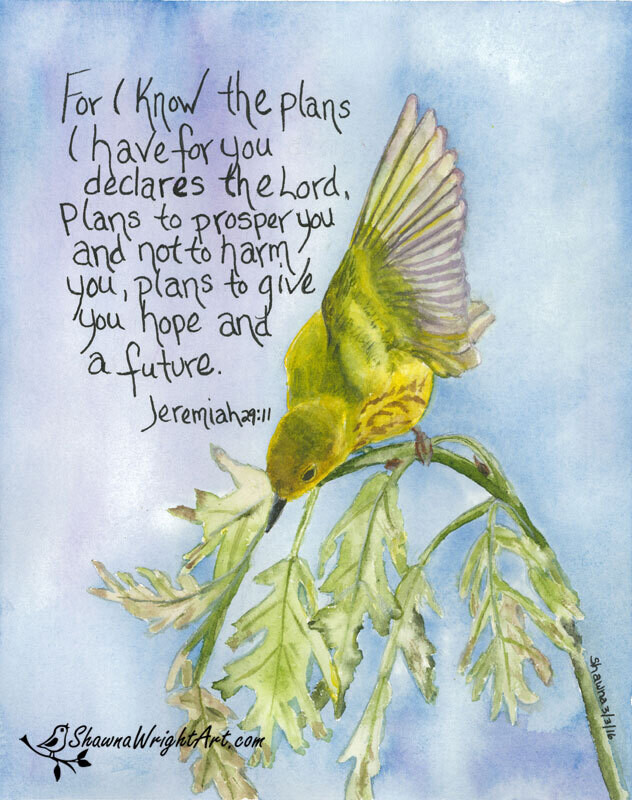 For I Know the plans
I have for you
declares the Lord,
Plans to prosper you
and not to harm
you, plans to give
you hope and
a future.
Jeremiah 29:11
Shawna 3/3/16
ShawnaWrightArt.com